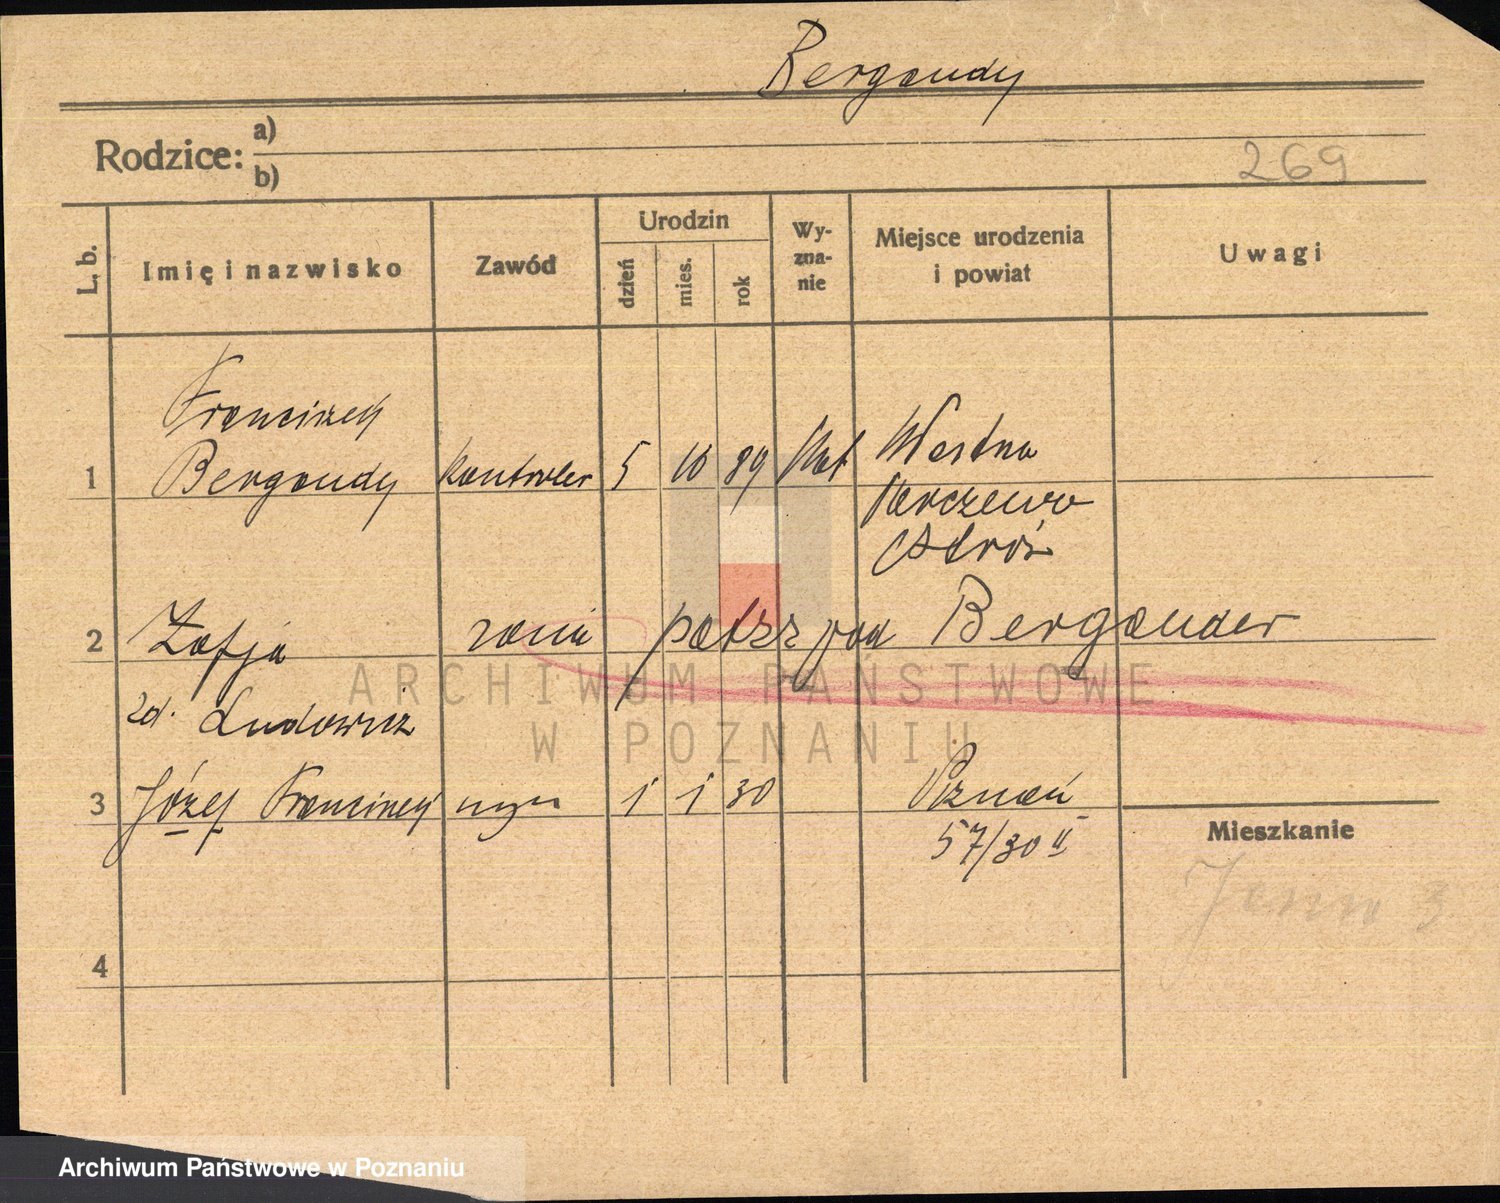 Bergandy
Rodzice: a)
b)
269
L. b.
Imię i nazwisko
Zawód
Urodzin
dzień
mies.
rok
Wy-
zna-
nie
Miejsce urodzenia
i powiat
Uwagi
Franciszek
1 Bergandy kontroler 5 10 89 Kat
Ostrów
2 Zofja żona patrz pod Bergander
zd. Ludowicz
3 Józef Franciszek syn 1 1 30 Poznań
57/30 II
Mieszkanie
3
4
ARCHIWUM PAŃSTWOWE
W POZNANIU
Archiwum Państwowe w Poznaniu